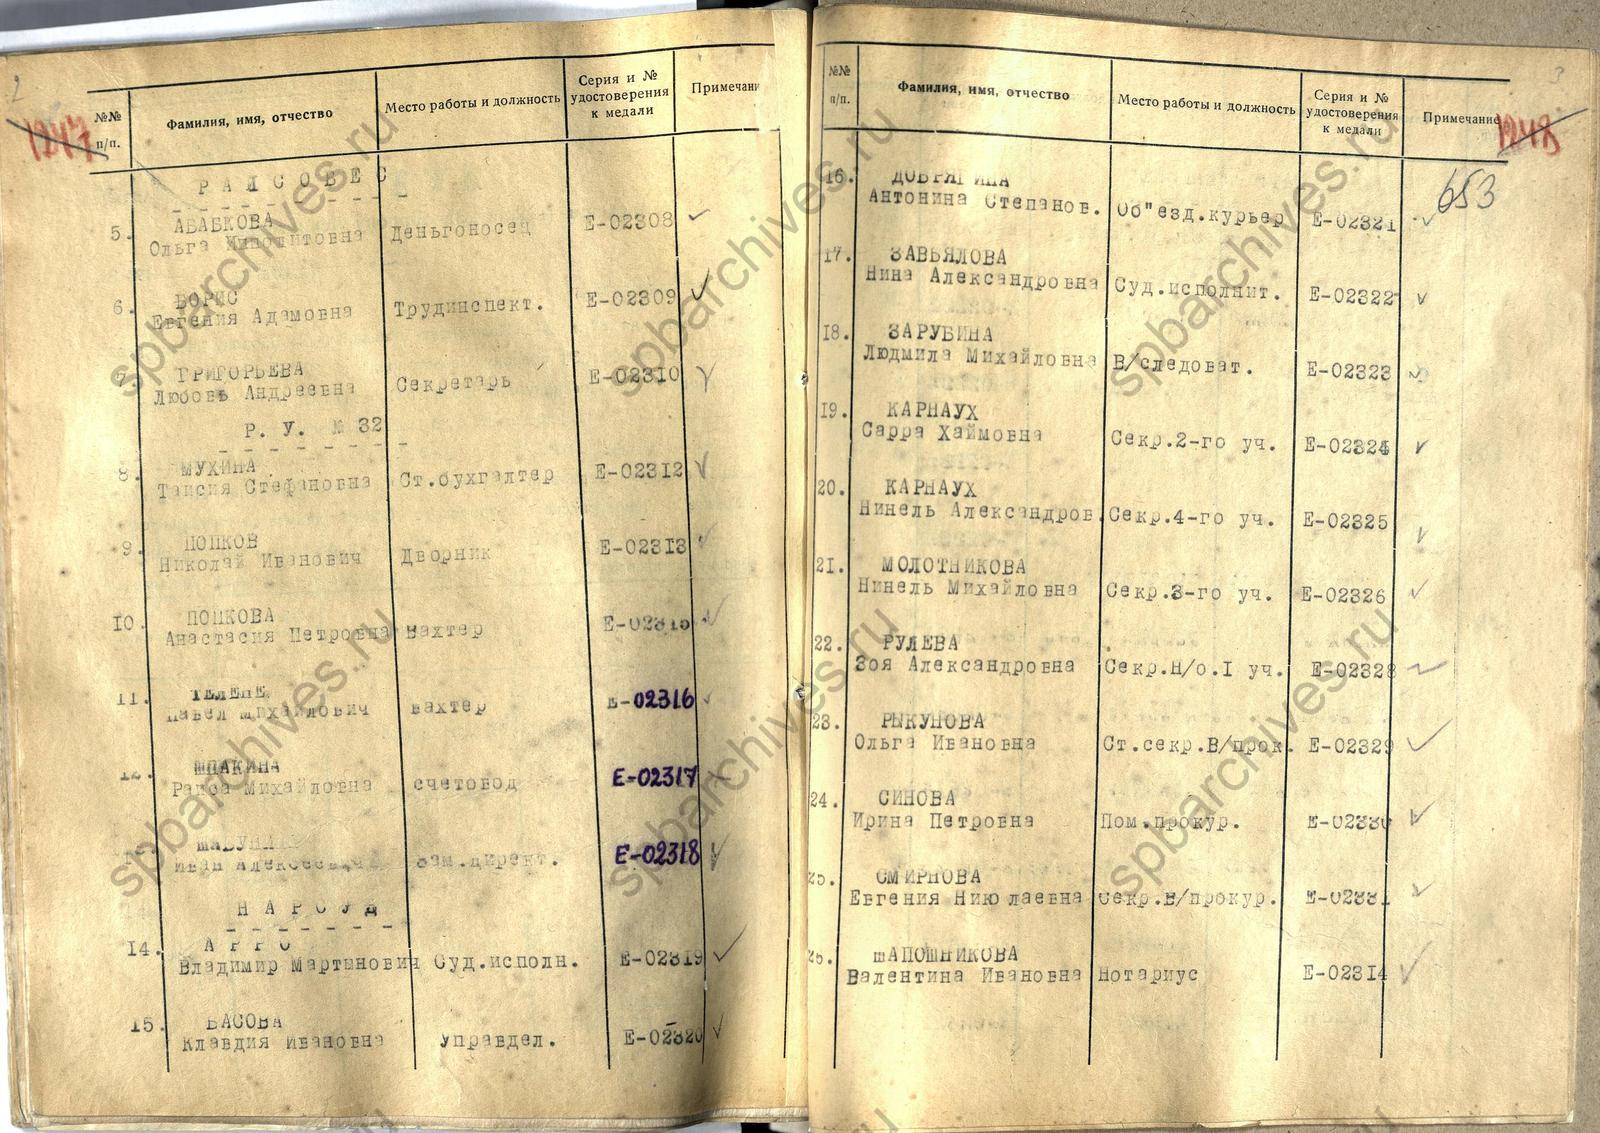 2
1247
№№ п/п.
Фамилия, имя, отчество
Место работы и должность
Серия и № удостоверения к медали
Примечани
Р А Й С О В Е С
5. АБАБКОВА
Ольга Деньгоносец Е-02308
6. БОРИС
Евгения Адамовна Трудинспект. Е-02309
7. ГРИГОРЬЕВА
Любовь Андреевна Секретарь Е-02310
Р. У. № 32
8. МУХИНА
Таисия Стефановна Ст.бухгалтер Е-02312
9. ПОПКОВ
Николай Иванович Дворник Е-02313
10. ПОПКОВА
Анастасия Петровна вахтер Е-02315
11.
Павел Михайлович вахтер Е-02316
12. ШПАКИНА
Раиса Михайловна счетовод Е-02317
Иван Алексеевич зам.директ. Е-02318
Н А Р С У Д
14. А Р Р О
Владимир Мартынович Суд.исполн. Е-02319
15. БАСОВА
Клавдия Ивановна Управдел. Е-02320
3
1248
653
№№ п/п.
Фамилия, имя, отчество
Место работы и должность
Серия и № удостоверения к медали
Примечание
16. ДОБРЯГИНА
Антонина Степанов. Об"езд.курьер Е-02321
17. ЗАВЬЯЛОВА
Нина Александровна Суд.исполнит. Е-02322
18. ЗАРУБИНА
Людмила Михайловна В/следоват. Е-02323
19. КАРНАУХ
Сарра Хаймовна Секр.2-го уч. Е-02324
20. КАРНАУХ
Нинель Александров. Секр.4-го уч. Е-02325
21. МОЛОТНИКОВА
Нинель Михайловна Секр.3-го уч. Е-02326
22. РУЛЕВА
Зоя Александровна Секр.Н/о.I уч. Е-02328
23. РЫКУНОВА
Ольга Ивановна Ст.секр.В/прок. Е-02329
24. СИНОВА
Ирина Петровна Пом.прокур. Е-02330
25. СМИРНОВА
Евгения Николаевна Секр.В/прокур. Е-02331
26. ШАПОШНИКОВА
Валентина Ивановна Нотариус Е-02314
spbarchives.ru
spbarchives.ru
spbarchives.ru
spbarchives.ru
spbarchives.ru
spbarchives.ru